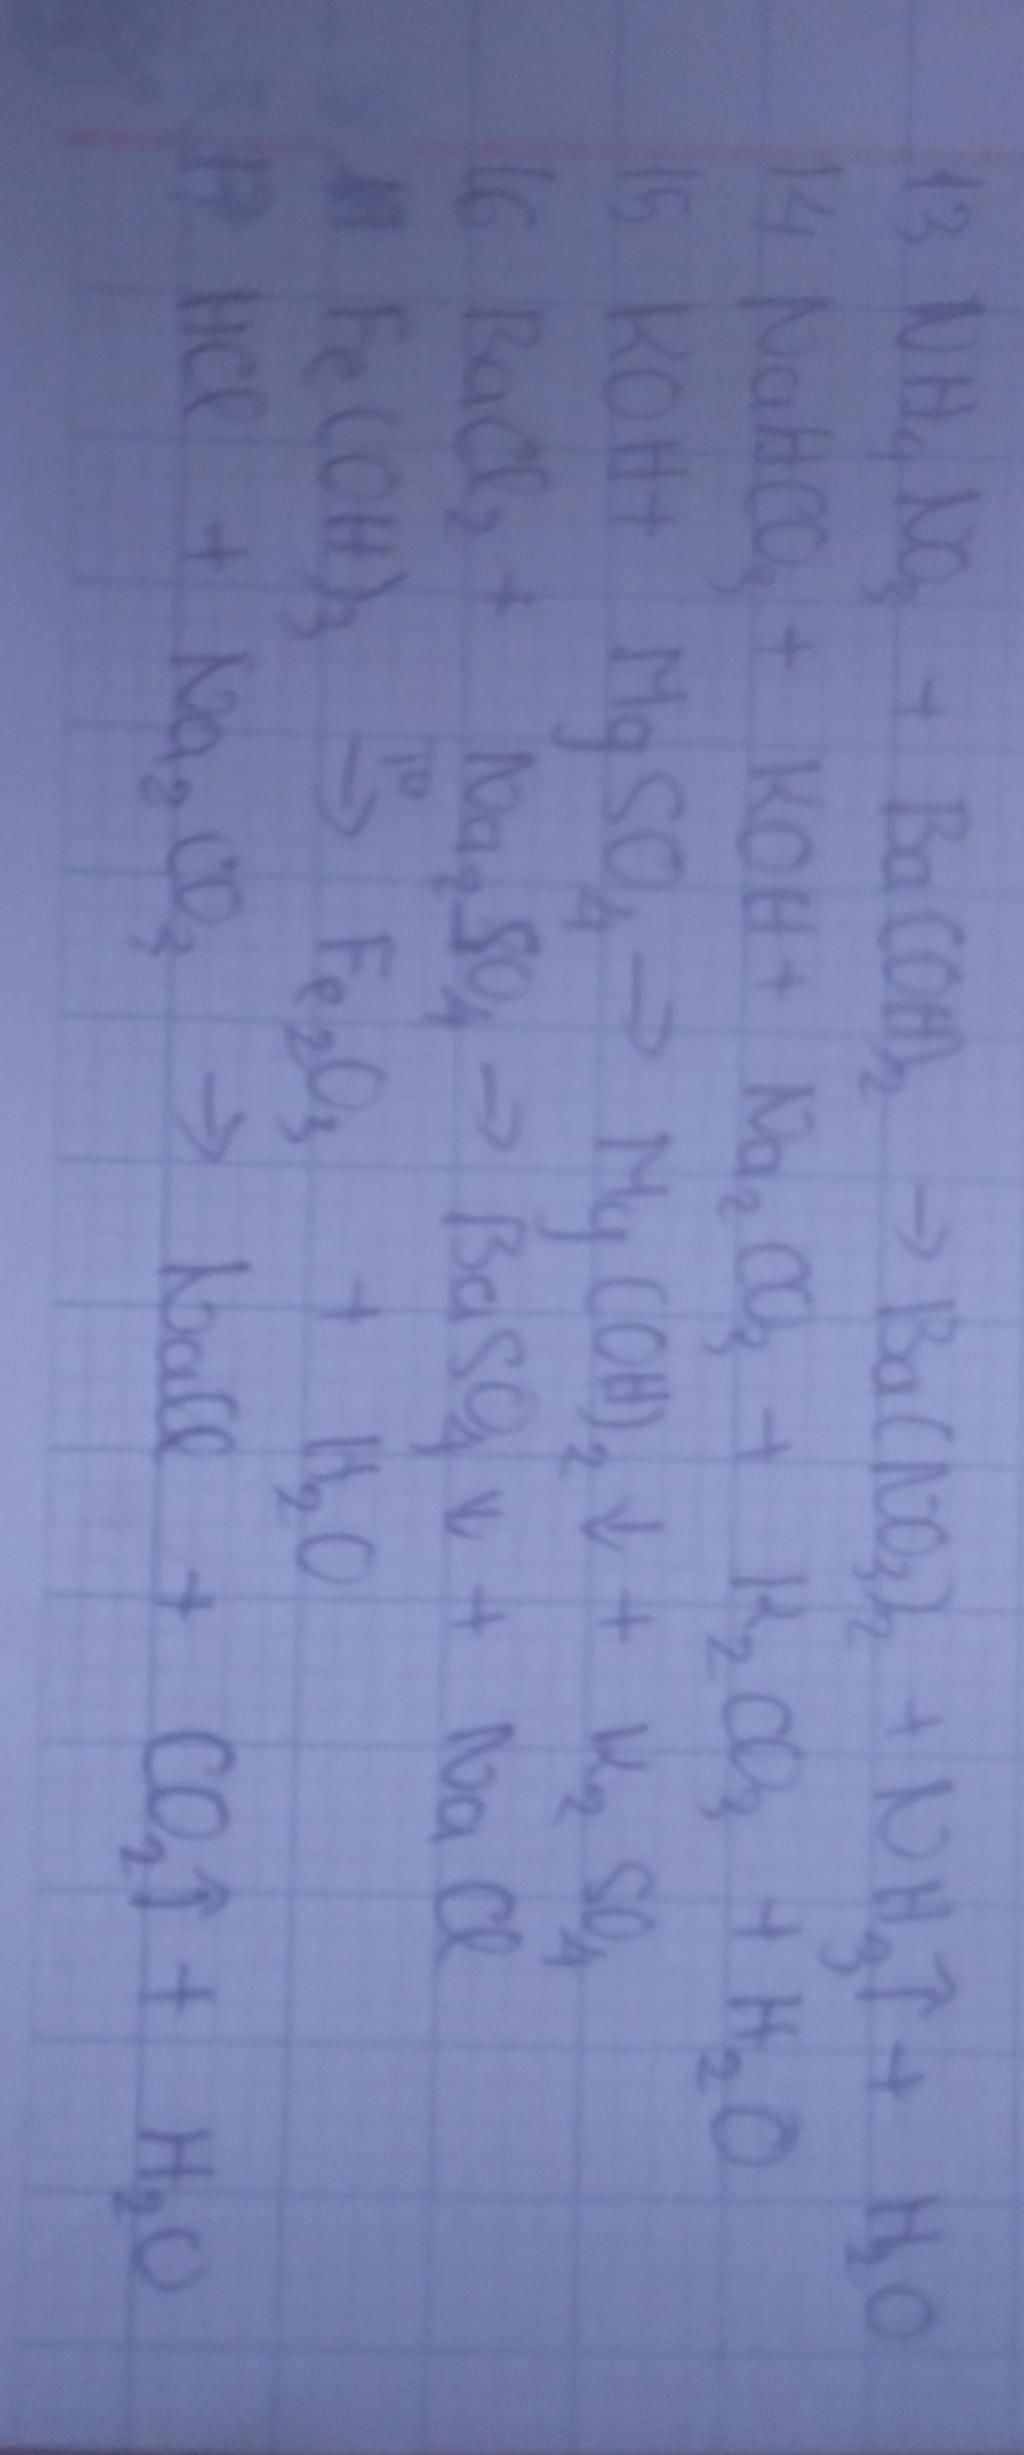 13 NH₄NO₃ + Ba(OH)₂ → Ba(NO₃)₂ + NH₃↑ + H₂O
14 NaHCO₃ + KOH + Na₂CO₃ + K₂CO₃ + H₂O
15 KOH + MgSO₄ → Mg(OH)₂↓ + K₂SO₄
16 BaCl₂ + Na₂SO₄ → BaSO₄↓ + NaCl
Fe(OH)₃ → Fe₂O₃ + H₂O
17 HCl + Na₂CO₃ → NaCl + CO₂↑ + H₂O